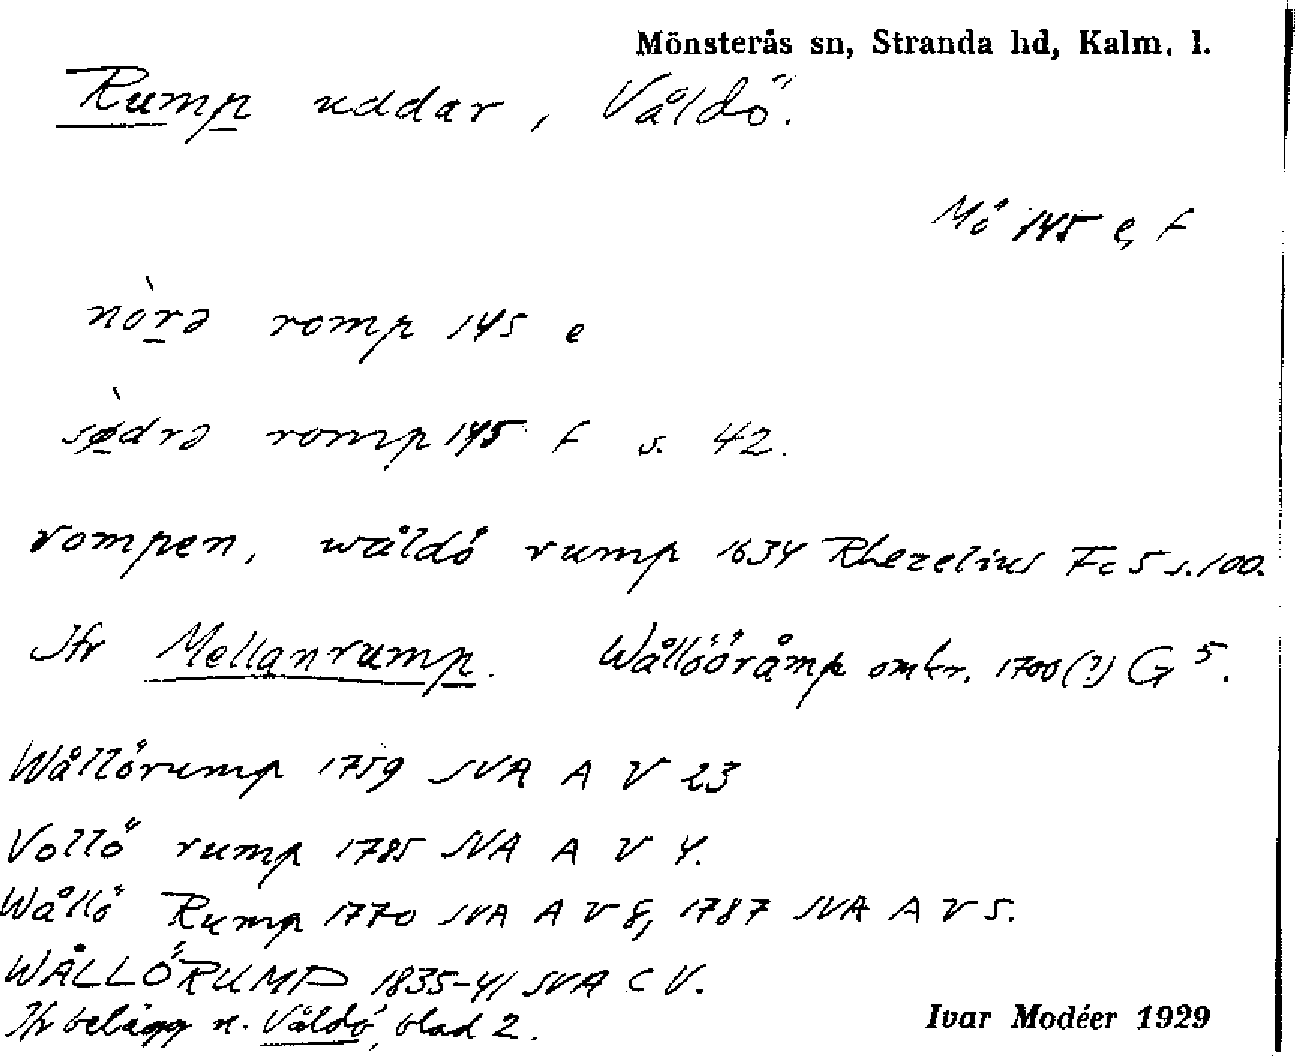 Mönsterås sn, Stranda hd, Kalm. l.
Rump uddar, Våldö.
Mö 145 e, f
nòrə romp 145 e
sødrə romp 145 f s. 42.
rompen, wåldö rump 1634 Rhezelius Fc 5 s. 100.
Jfr Mellanrump. Wållööråmp omkr. 1700 (?) G 5.
Wållörump 1759 SVA A V 23
Vollö rump 1785 SVA A V 4.
Wållö Rump 1770 SVA A V 8, 1787 SVA A V 5.
WÅLLÖRUMP 1835-41 SVA C V.
Jfr belägg u. Våldö, blad 2.
Ivar Modéer 1929